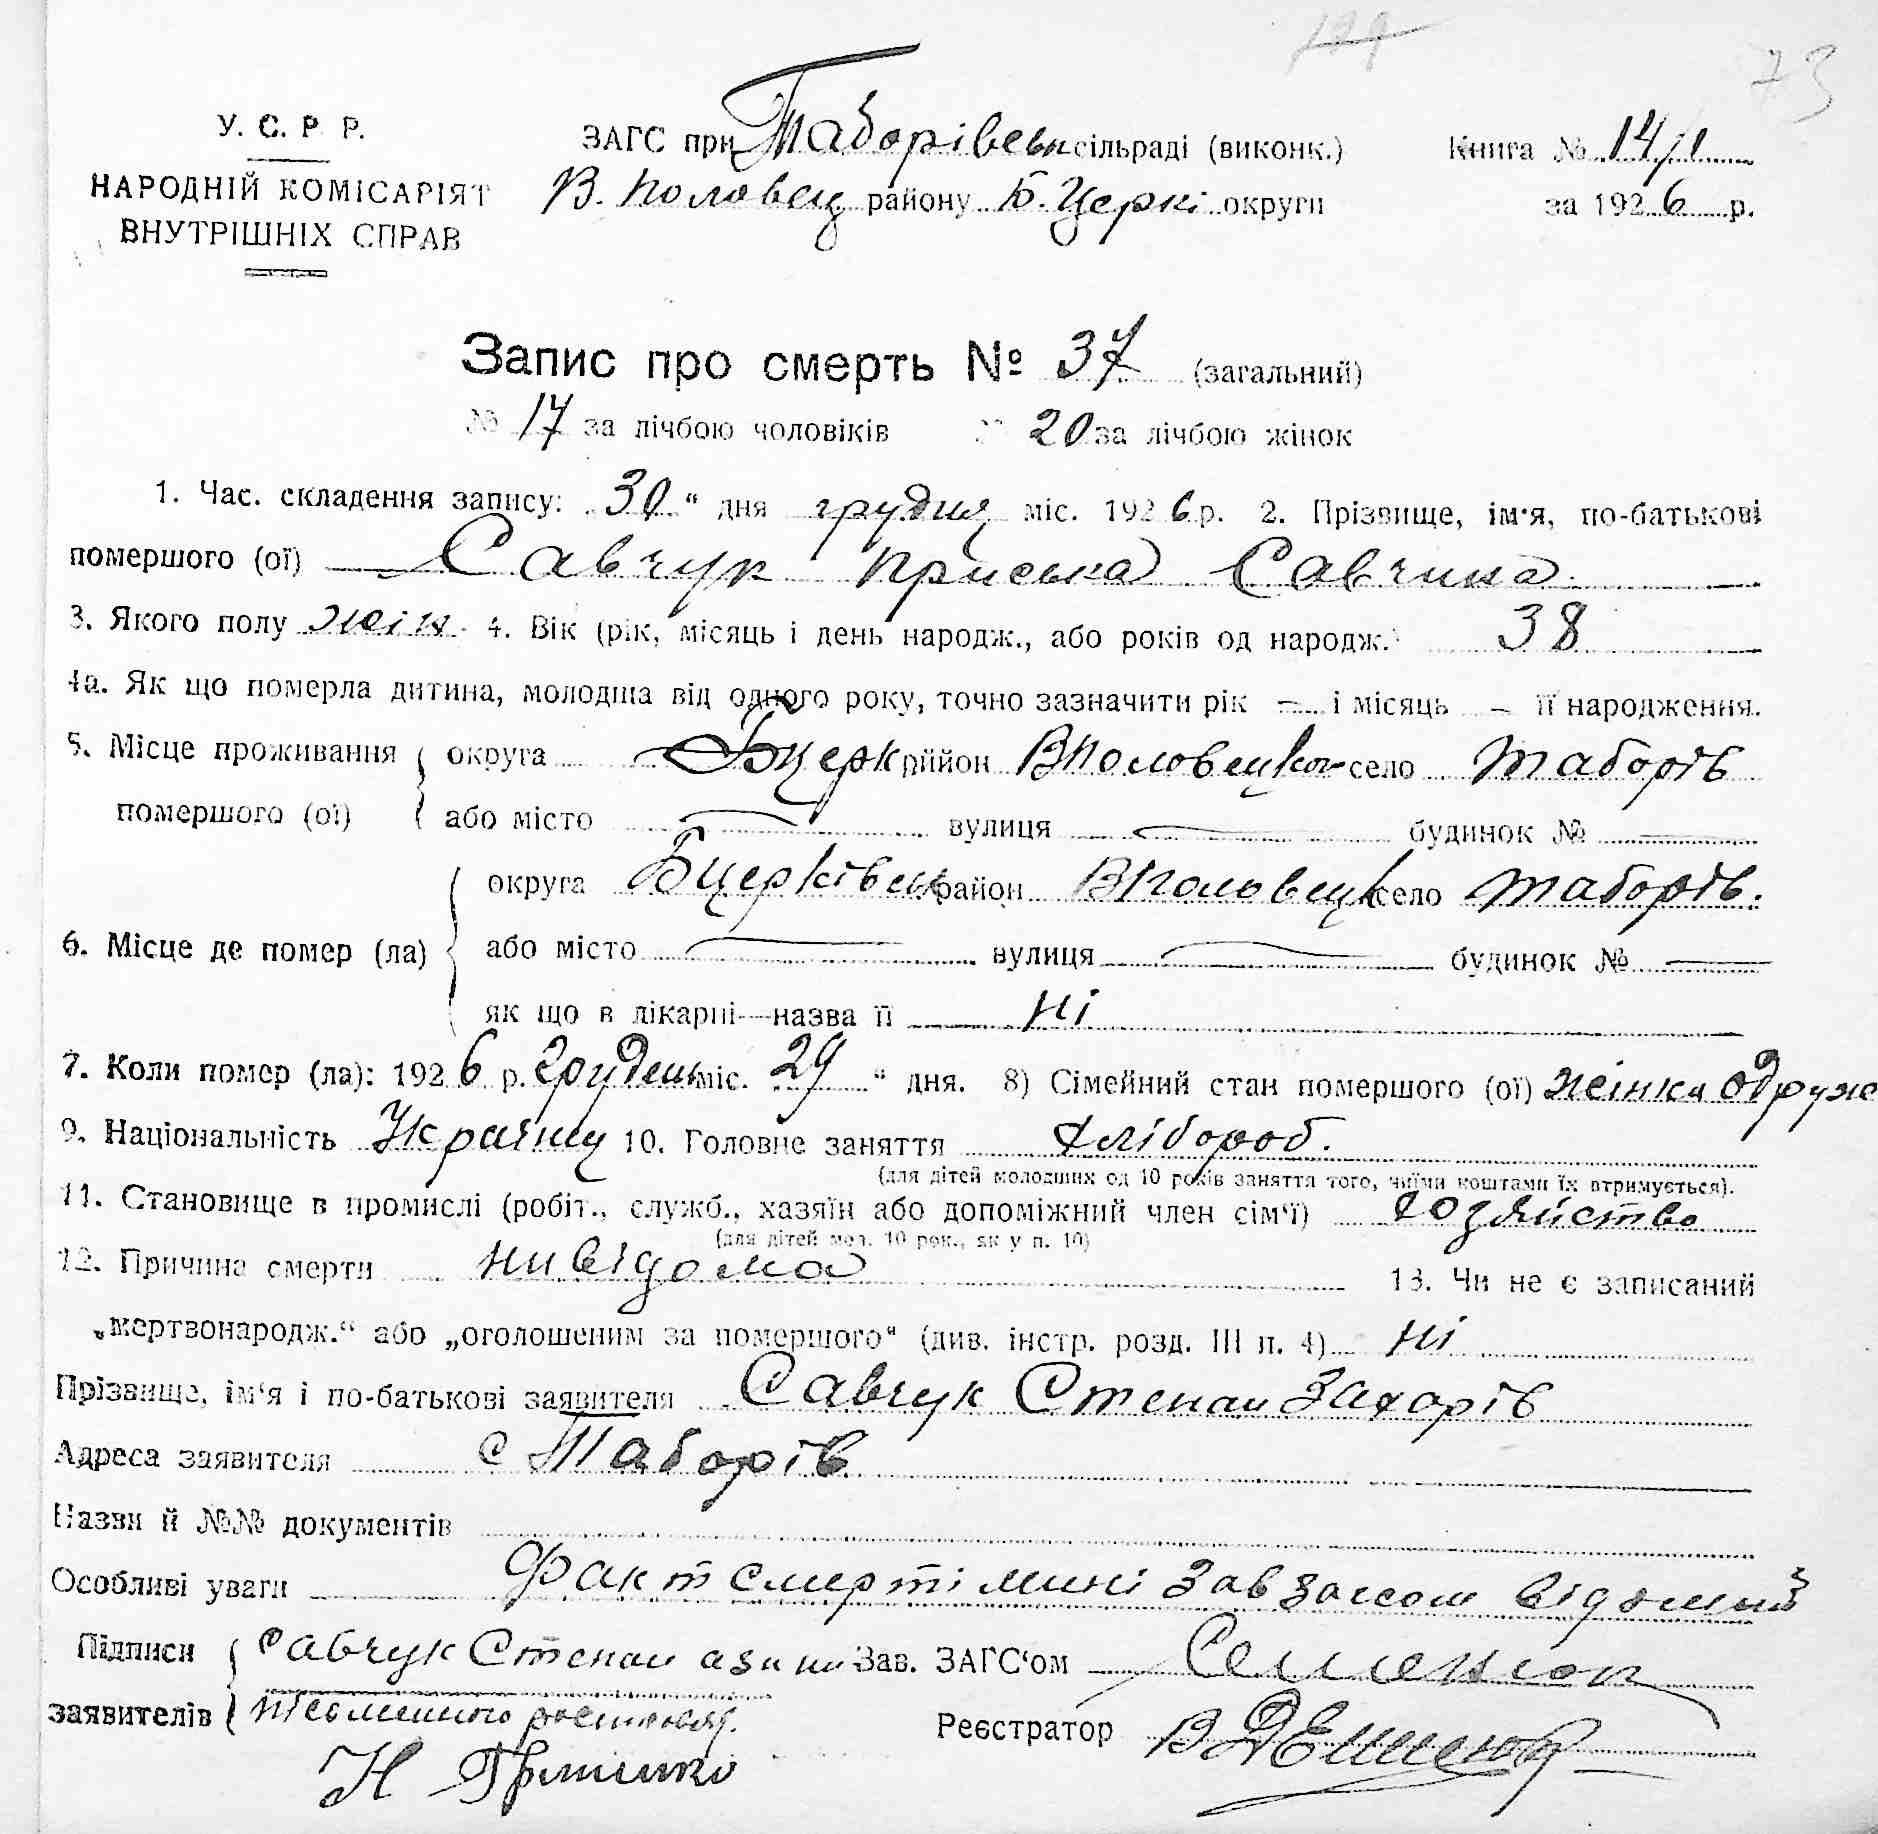 73
У. С. Р. Р.
НАРОДНІЙ КОМІСАРІЯТ
ВНУТРІШНІХ СПРАВ
ЗАГС при Таборівськ сільраді (виконк.)
В. Половец району Б. Церкі округи
Книга № 14/1
за 1926 р.
Запис про смерть № 37 (загальний)
№ 17 за лічбою чоловіків № 20 за лічбою жінок
1. Час. складення запису: „30“ дня грудня міс. 1926 р. 2. Прізвище, ім'я, по-батькові
помершого (ої) СавчукПриська Савчина
3. Якого полу жін. 4. Вік (рік, місяць і день народж., або років од народж.) 38
4а. Як що померла дитина, молодша від одного року, точно зазначити рік — і місяць — її народження.
5. Місце проживання помершого (ої) округа Бцерк район ВПоловецьког село Таборів
або місто — вулиця — будинок № —
6. Місце де помер (ла) округа Бцерківськ район ВПоловецьк село Таборів.
або місто — вулиця — будинок № —
як що в лікарні—назва її Ні
7. Коли помер (ла): 1926 р. Грудень міс. 29 “ дня. 8) Сімейний стан помершого (ої) жінка одруж
9. Національність Україну 10. Головне заняття хлібороб.
(для дітей молодших од 10 років заняття того, чиїми коштами їх втримується).
11. Становище в промислі (робіт., служб., хазяїн або допоміжний член сім'ї) хозяйство
(для дітей мол. 10 рок., як у п. 10)
12. Причина смерти нивідома 13. Чи не є записаний
„мертвонародж.“ або „оголошеним за помершого“ (див. інстр. розд. III п. 4) Ні
Прізвище, ім'я і по-батькові заявителя Савчук Степан Захарів
Адреса заявителя с Таборів
Назви й №№ документів
Особливі уваги Факт смерті мині Зав Загсом відомий
Підписи заявителів Савчук Степан а за ни Зав. ЗАГС'ом Семенюк
письменного росписовсь.
Реєстратор В Демисюк
Н Гриценко